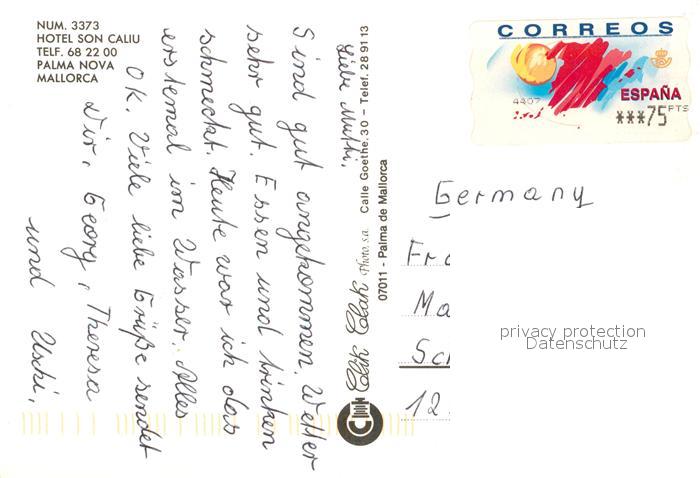 NUM. 3373
HOTEL SON CALIU
TELF. 68 22 00
PALMA NOVA
MALLORCA
Liebe Mutti,
Sind gut angekommen. Wetter
sehr gut. Essen und trinken
schmeckt. Heute war ich das
erstemal im Wasser. Alles
OK. Viele liebe Grüße sendet
Dir, Georg, Theresa
und Uschi.
Clik Clak Photo, s.a. Calle Goethe, 30 - Telef. 28 91 13
07011 - Palma de Mallorca
CORREOS
ESPAÑA
4407
***75 PTS
Germany
Fr
Ma
Sc
12
privacy protection
Datenschutz